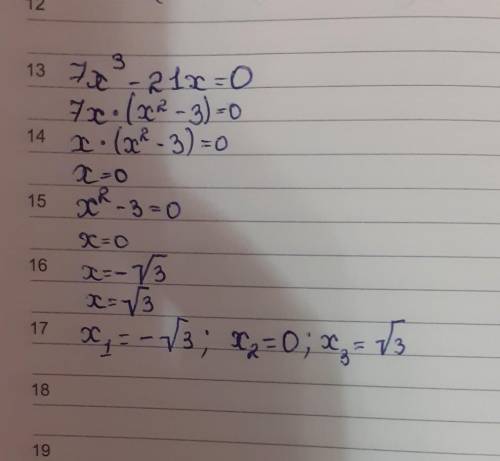 12
13 7x³ - 21x = 0
7x · (x² - 3) = 0
14 x · (x² - 3) = 0
x = 0
15 x² - 3 = 0
x = 0
16 x = -√3
x = √3
17 x₁ = -√3; x₂ = 0; x₃ = √3
18
19